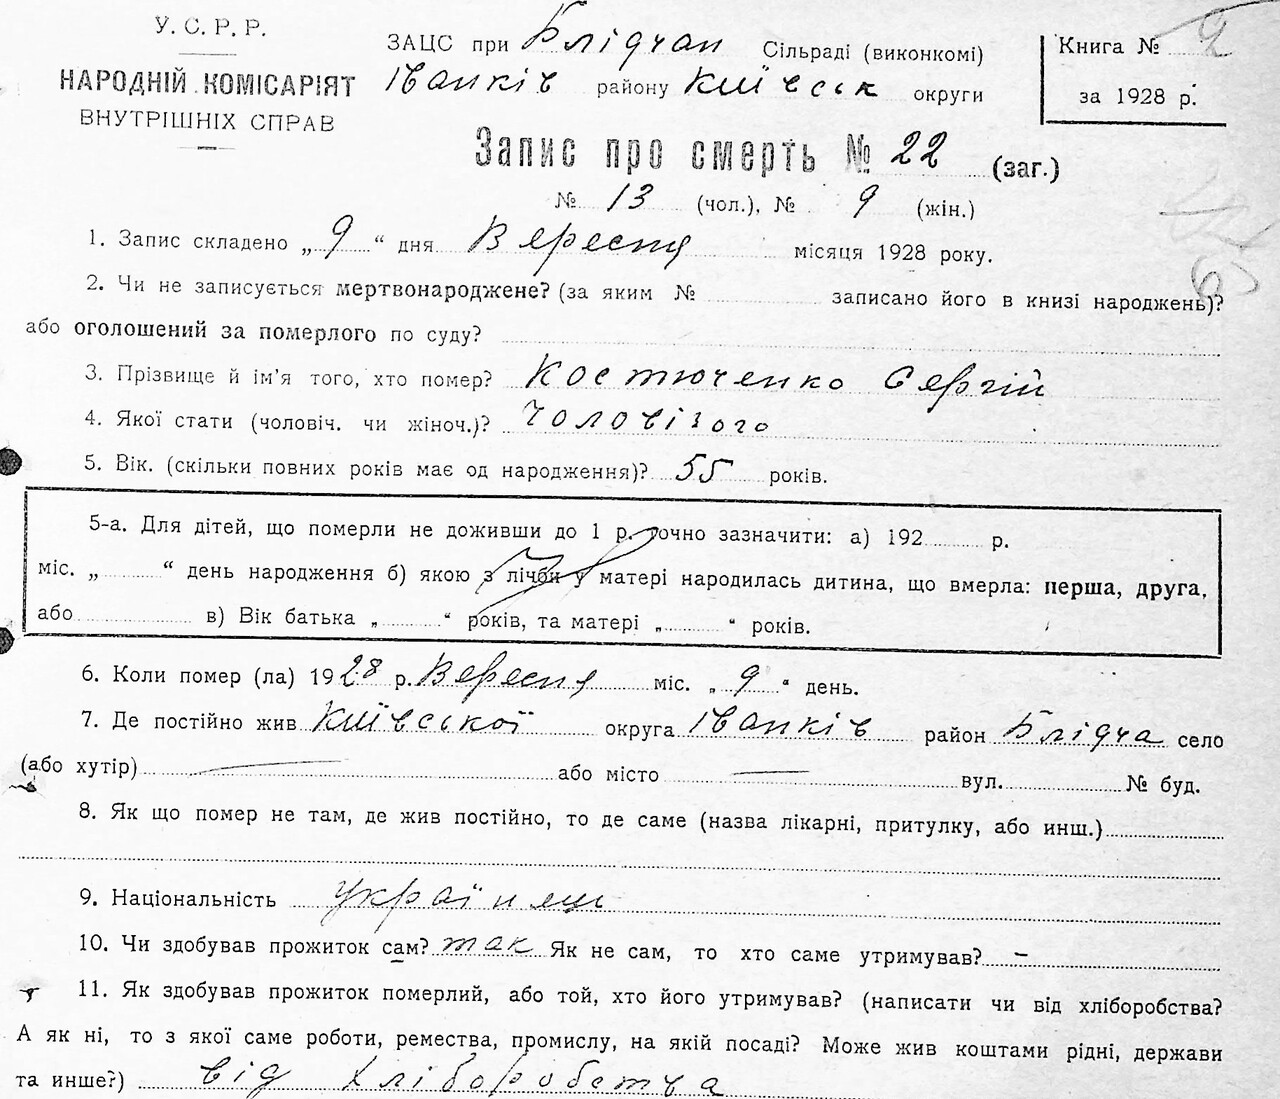 У. С. Р. Р.
НАРОДНІЙ КОМІСАРІЯТ
ВНУТРІШНІХ СПРАВ
ЗАЦС при Блідчан Сільраді (виконкомі)
Іванків району Київськ округи
Книга № 2
за 1928 р.
Запис про смерть № 22 (заг.)
№ 13 (чол.), № 9 (жін.)
1. Запис складено „ 9 “ дня Вересня місяця 1928 року.
2. Чи не записується мертвонароджене? (за яким № записано його в книзі народжень)?
або оголошений за померлого по суду?
3. Прізвище й ім'я того, хто помер? Костюченко Сергій
4. Якої стати (чоловіч. чи жіноч.)? Чоловічого
5. Вік. (скільки повних років має од народження)? 55 років.
5-а. Для дітей, що померли не доживши до 1 р. точно зазначити: а) 192 р.
міс. „ “ день народження б) якою з лічби у матері народилась дитина, що вмерла: перша, друга,
або в) Вік батька „ “ років, та матері „ “ років.
6. Коли помер (ла) 1928 р. Вересня міс. „ 9 “ день.
7. Де постійно жив Київської округа Іванків район Блідча село
(або хутір) — або місто — вул. № буд.
8. Як що помер не там, де жив постійно, то де саме (назва лікарні, притулку, або инш.)
9. Національність Українець
10. Чи здобував прожиток сам? так Як не сам, то хто саме утримував? –
11. Як здобував прожиток померлий, або той, хто його утримував? (написати чи від хліборобства?
А як ні, то з якої саме роботи, ремества, промислу, на якій посаді? Може жив коштами рідні, держави
та инше?) від хліборобства